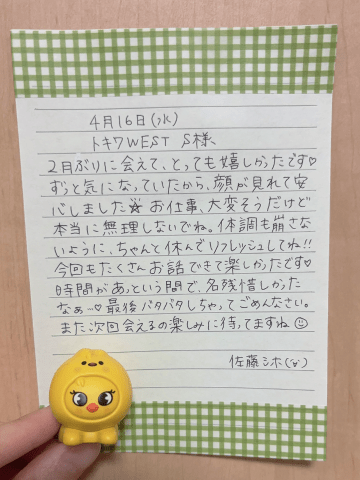 4月16日(水)
トキワWEST S様
2月ぶりに会えて、とっても嬉しかったです♡
ずっと気になっていたから、顔が見れて安
心しました☆ お仕事、大変そうだけど
本当に無理しないでね。体調も崩さな
いように、ちゃんと休んでリフレッシュしてね!!
今回もたくさんお話できて楽しかったです♡
時間があっという間で、名残惜しかった
なぁ…♡ 最後バタバタしちゃってごめんなさい。
また次回会えるの楽しみに待ってますね☺
佐藤シホ(˘ᵕ˘)